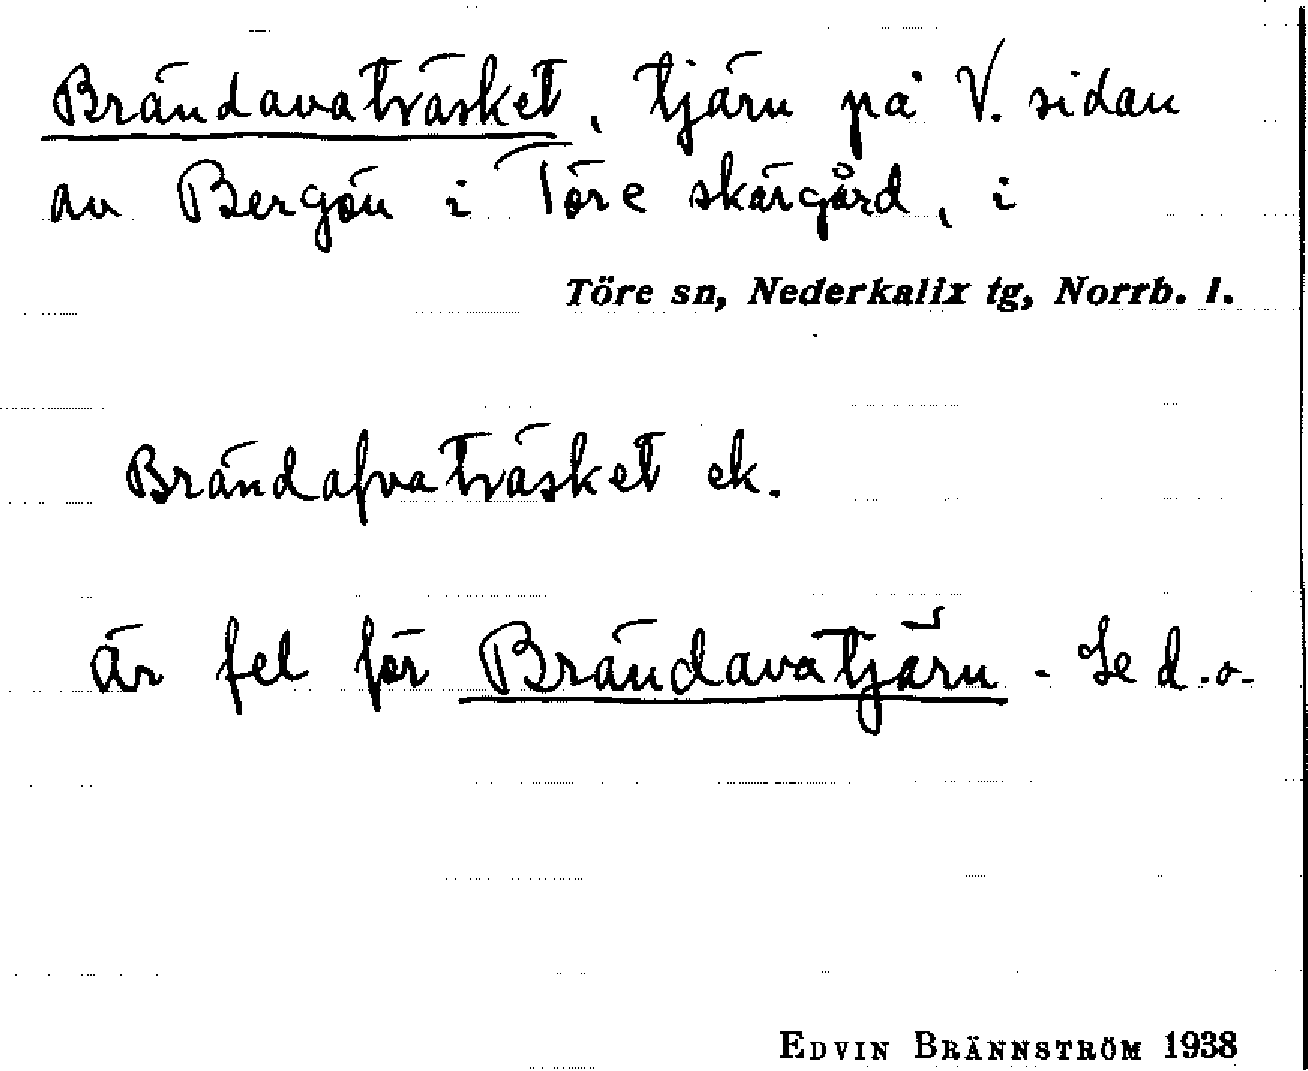 Brändavaträsket, tjärn på V. sidan
av Bergön i Töre skärgård, i
Töre sn, Nederkalix tg, Norrb. l.
Brändafvaträsket ek.
är fel för Brändavatjärn. Se d.o.
EDVIN BRÄNNSTRÖM 1938